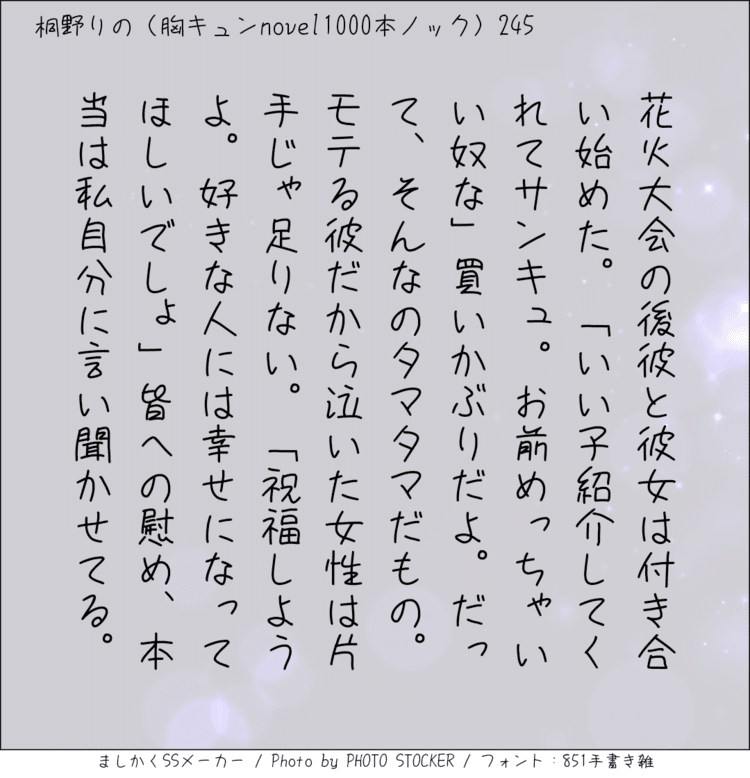 桐野りの（胸キュンnovel1000本ノック）245
花火大会の後彼と彼女は付き合
い始めた。「いい子紹介してく
れてサンキュ。お前めっちゃい
い奴な」買いかぶりだよ。だっ
て、そんなのタマタマだもの。
モテる彼だから泣いた女性は片
手じゃ足りない。「祝福しよう
よ。好きな人には幸せになって
ほしいでしょ」皆への慰め、本
当は私自分に言い聞かせてる。
ましかくSSメーカー / Photo by PHOTO STOCKER / フォント：851手書き雑